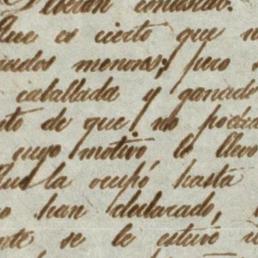 deran contestó:
Que es cierto que
iados menores; pero
caballada y ganado
to de que no podia
cuyo motivo le llevó
Que la ocupó, hasta
o han declarado,
nte se le estuvo